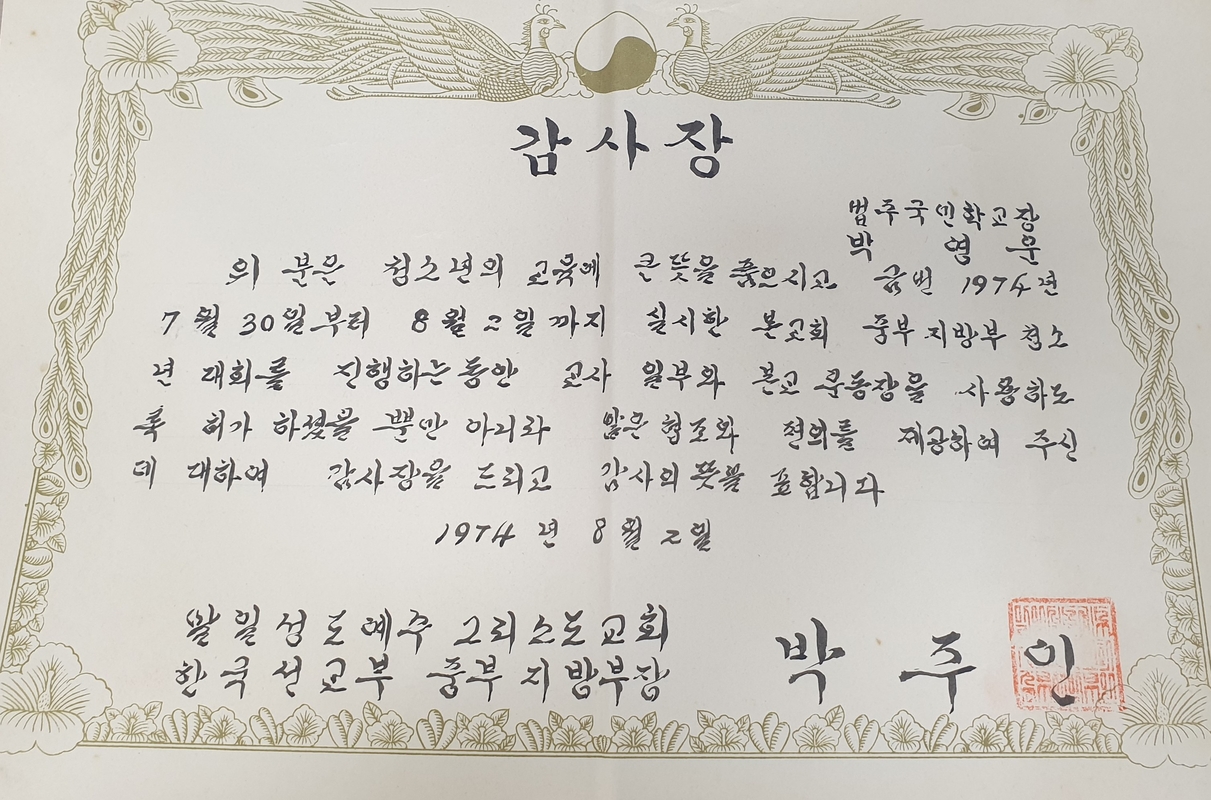 감사장
범주국민학교장
박 영 우
위 분은 청소년의 교육에 큰 뜻을 품으시고 금번 1974년
7월 30일부터 8월 2일까지 실시한 본교회 중부지방부 청소
년 대회를 진행하는 동안 교사 일부와 본교 운동장을 사용하도
록 허가 하셨을 뿐만 아리라 많은 협조와 편의를 제공하여 주신
데 대하여 감사장을 드리고 감사의 뜻을 표합니다
1974년 8월 2일
말일성도예수 그리스도교회
한국선교부 중부지방부장
박 주 인